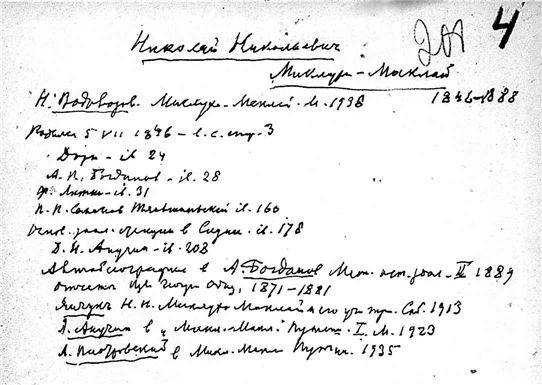 4
Николай Николаевич
Миклуха-Маклай
Н. Водовозов. Миклуха-Маклай. М. 1938 1846-1888
Родился 5 VII 1846 - l. c. стр. 3
Дорн - ib 24
А. П. Богданов - ib. 28
Ф. Литке - ib. 31
П. П. Семенов Тяншанский ib. 160
Основ. зоол. станции в Сиднее ib. 178
Д. Н. Анучин - ib. 208
Автобиография в А. Богданов Мат. ист. зоол. II 1889
отчеты Геогр. Общ. 1871-1881
Н. Н. Миклуха Маклай и его СПб. 1913
Д. Анучин в Микл.-Макл. Путеш. I. М. 1923
А. Пиотровский в Микл. Макл. Путеш. 1935